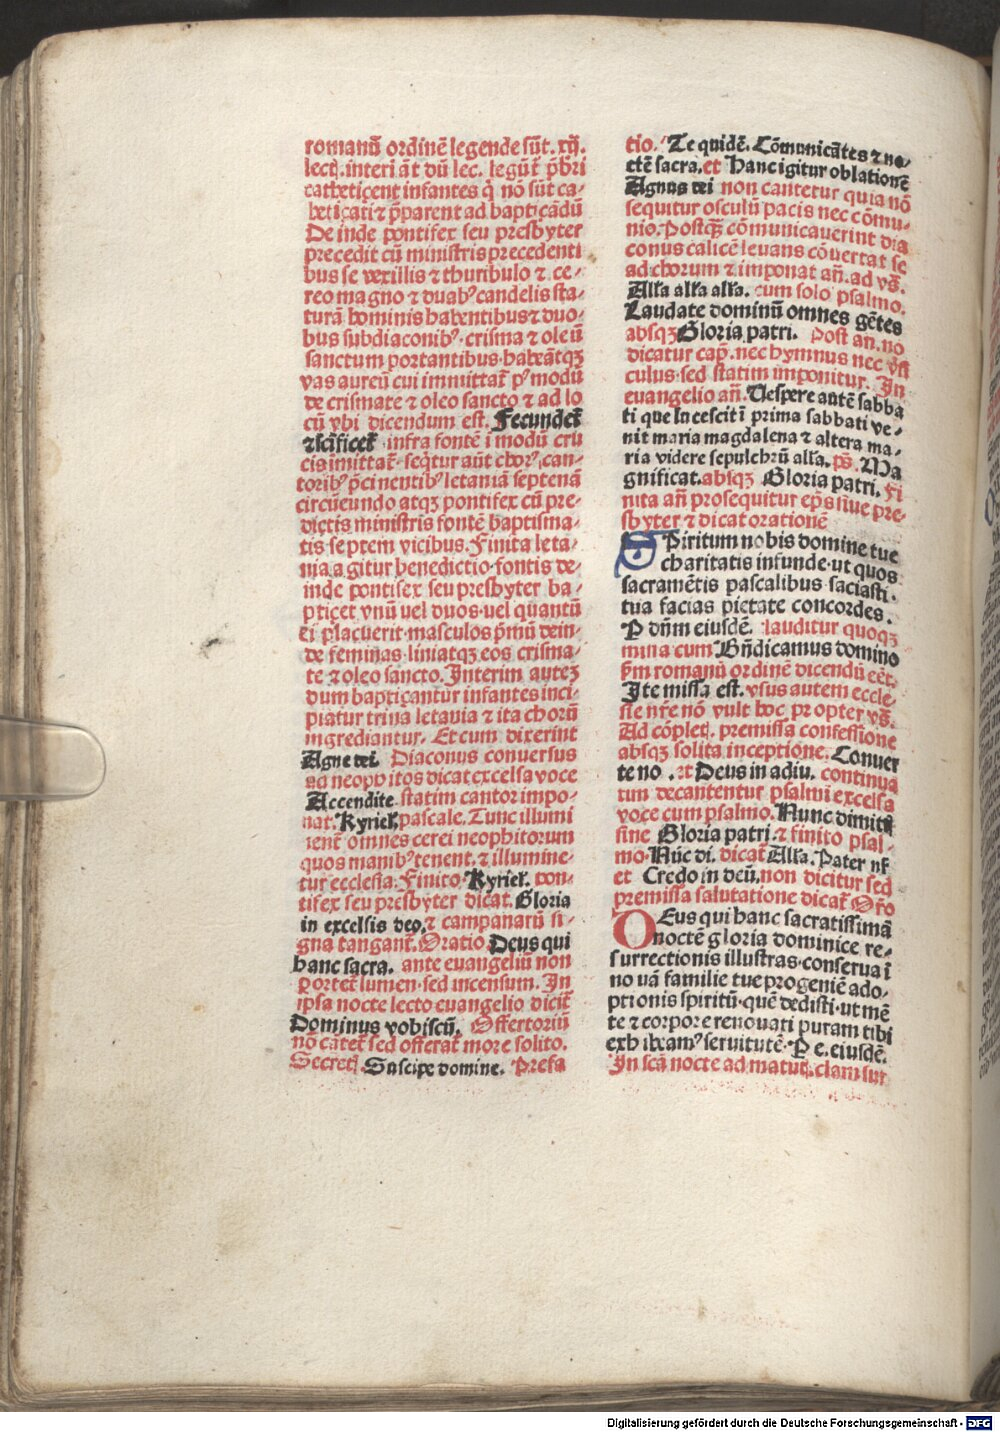 romanū ordinē legende sūt. xij.
lectꝭ. interi āt dū lec. legūt̄ p̄bri
catheticent infantes q̄ nō sūt ca⸗
heticati ⁊ p̄parent ad bapticādū
De inde pontifex seu presbyter
precedit cū ministris precedenti
bus se vexillis ⁊ thuribulo ⁊ ce⸗
reo magno ⁊ duabꝰ candelis sta⸗
turā hominis habentibus ⁊ duo⸗
bus subdiaconibꝰ · crisma ⁊ oleū
sanctum portantibus · habeātqꝫ
vas aureū cui immittat̄ pͥ modū
de crismate ⁊ oleo sancto ⁊ ad lo
cū vbi dicendum est. Fecundet̄
⁊ scīficet̄ infra fontē ī modū cru
cis īmittat̄ · seq̄tur aūt chorꝰ, can⸗
toribꝰ p̄cinentibꝰ letaniā septenā
circūeundo atqꝫ pontifex cū pre⸗
dictis ministris fontē baptisma⸗
tis septem vicibus. Finita leta⸗
nia agitur benedictio · fontis de⸗
inde pontifex seu presbyter ba⸗
pticet vnū uel duos · uel quantū
ei placuerit · masculos p̄mū dein⸗
de feminas · liniatqꝫ eos crisma⸗
te ⁊ oleo sancto. Interim autē
dum bapticantur infantes inci⸗
piatur trina letania ⁊ ita chorū
ingrediantur. Et cum dixerint
Agne dei. Diaconus conuersus
ad neophitos dicat excelsa voce
Accendite statim cantor impo⸗
nat. Kyriel. pascale. Tunc illumi
nent omnes cerei neophitorum
quos manibꝰ tenent. ⁊ illumine⸗
tur ecclesia. Finito Kyriel. pon⸗
tifex seu presbyter dicat. Gloria
in excelsis deo. ⁊ campanarū si⸗
gna tangant̄. Oratio Deus qui
hanc sacra. ante euangeliū non
portet̄ lumen · sed incensum. In
ipsa nocte lecto euangelio dicit̄
Dominus vobiscū. Offertoriū
nō cātet̄ sed offerat̄ more solito.
Secretꝭ. Suscipe domine. Prefa
tio. Te quidē. Cōmunicātes ⁊ no⸗
ctē sacra. et Hanc igitur oblationē
Agnus dei non cantetur quia nō
sequitur osculū pacis nec cōmu⸗
nio. Postqꝫ cōmunicauerint dia
conus calicē leuans cōuertat se
ad chorum ⁊ imponat an̄. ad vs̄.
Alla alla alla. cum solo psalmo.
Laudate dominū omnes gētes
absqꝫ Gloria patri. post an. no
dicatur cap̄. nec hymnus nec v̄si
culus · sed statim imponitur. In
euangelio an̄. Vespere autē sabba
ti que lucescit ī prima sabbati ve⸗
nit maria magdalena ⁊ altera ma⸗
ria videre sepulchrū alla. ps̄. Ma
gnificat. absqꝫ Gloria patri. Fi
nita an̄ prosequitur ep̄s siue pre⸗
sbyter ⁊ dicat orationē
SPiritum nobis domine tue
charitatis infunde · ut quos
sacramētis pascalibus saciasti ·
tua facias pietate concordes.
P dn̄m eiusdē. lauditur quoqꝫ
mina cum Bn̄dicamus domino
ẜm romanū ordinē dicendū eēt.
Ite missa est. vsus autem eccle⸗
sie nr̄e nō vult hoc propter vs̄.
Ad cōpletꝭ. premissa confessione
absqꝫ solita inceptione. Conuer
te no . et Deus in adiu. continua
tim decantentur psalmi excelsa
voce cum psalmo. Nunc dimitt̄
sine Gloria patri ⁊ finito psal⸗
mo. Nūc di. dicat̄ Alla. Pater nr̄
et Credo in deū. non dicitur sed
premissa salutatione dicat̄ Or̄o
DEus qui hanc sacratissimā
noctē gloria dominice re⸗
surrectionis illustras · conserua ī
no uā familie tue progeniē ado⸗
ptionis spiritū · quē dedisti · ut mē
te ⁊ corpore renouati puram tibi
exhibeamꝰ seruitutē. P e. eiusdē.
In scā nocte ad matut̄. clam sur
Digitalisierung gefördert durch die Deutsche Forschungsgemeinschaft - DFG